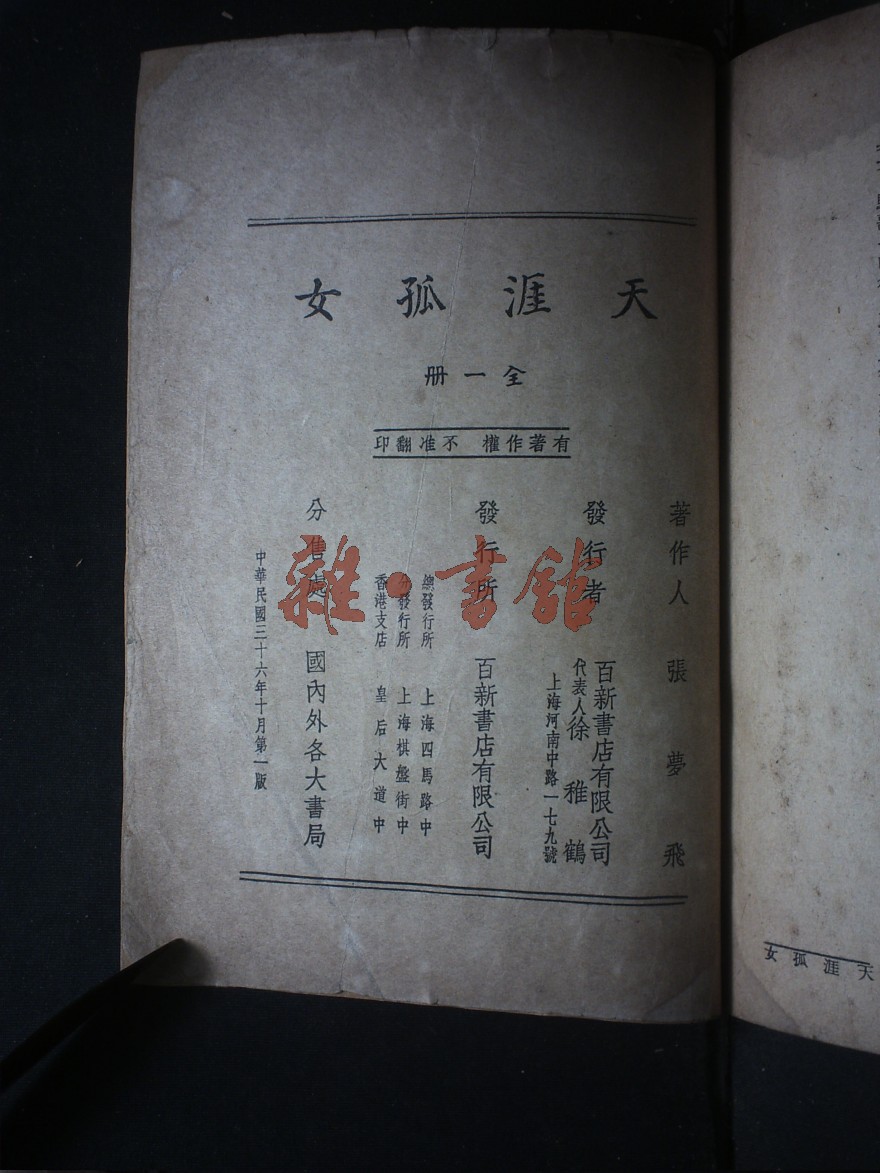 天涯孤女
全一册
有著作權 不准翻印
著作人 張夢飛
發行者 百新書店有限公司
代表人徐稚鶴
上海河南中路一七九號
發行所 百新書店有限公司
總發行所 上海四馬路中
分發行所 上海棋盤街中
香港支店 皇后大道中
分售處 國內外各大書局
中華民國三十六年十月第一版
雜·書館
天涯孤女